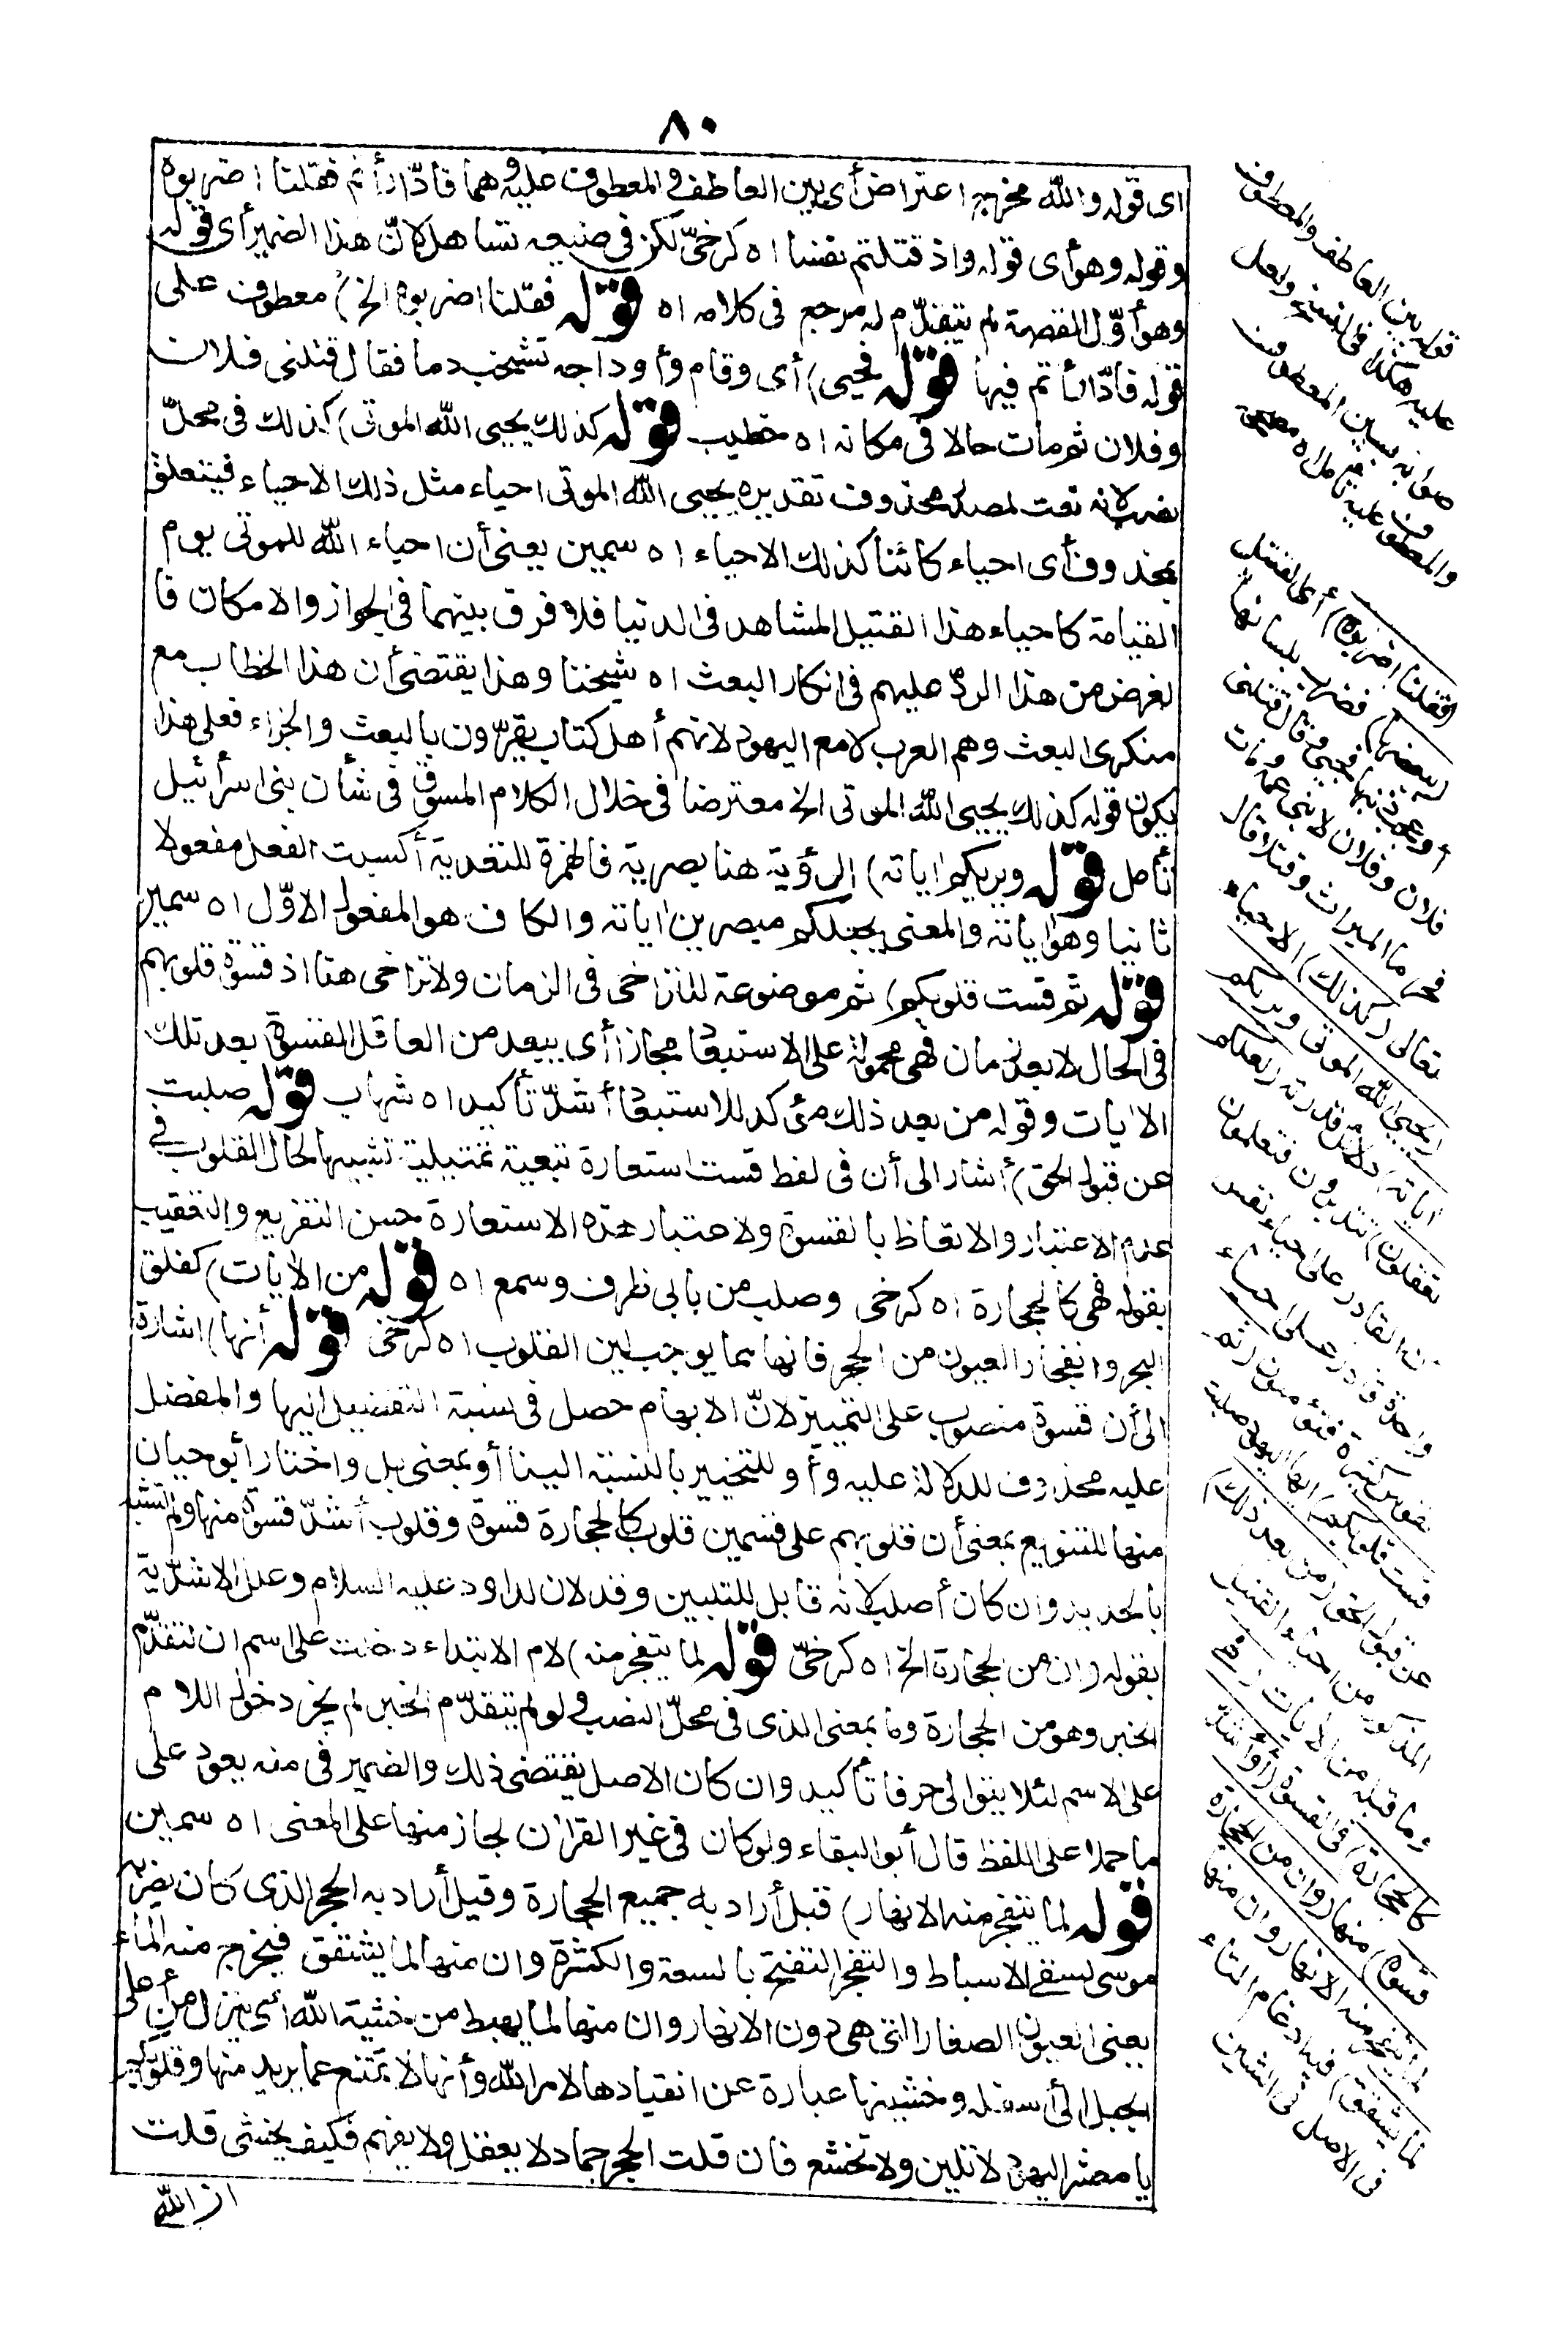 ٨٠
اى قوله والله مخرج اعتراض أى بين العاطف والمعطوف عليه وهما فادّارأتم فقلنا اضربوه
وقوله وهو أى قوله واذ قتلتم نفسا اه كرخىّ لكن فى صنيعه تساهل لانّ هذا الضمير أى قوله
وهو أوّل القصة لم يتقدّم له مرجع فى كلامه اه قوله فقلنا اضربوه الخ) معطوف على
قوله فادّارأتم فيها قوله فحيى) أى وقام وأوداجه تشخب دما فقال قتلنى فلان
وفلان ثم مات حالا فى مكانه اه خطيب قوله كذلك يحيى الله الموتى) كذلك فى محلّ
نصب لانه نعت لمصدر محذوف تقديره يحيى الله الموتى احياء مثل ذلك الاحياء فيتعلق
بمحذوف أى احياء كائنا كذلك الاحياء اه سمين يعنى أن احياء الله للموتى يوم
القيامة كاحياء هذا القتيل المشاهد فى الدنيا فلا فرق بينهما فى الجواز والامكان فا
لغرض من هذا الردّ عليهم فى انكار البعث اه شيخنا وهذا يقتضى أن هذا الخطاب مع
منكرى البعث وهم العرب لا مع اليهود لانهم أهل كتاب يقرّون بالبعث والجزاء فعلى هذا
يكون قوله كذلك يحيى الله الموتى الخ معترضا فى خلال الكلام المسوق فى شأن بنى اسرائيل
تأمل قوله ويريكم اياته) الرؤية هنا بصرية فالهمزة للتعدية أكسبت الفعل مفعولا
ثانيا وهو اياته والمعنى يجعلكم مبصرين اياته والكاف هو المفعول الاوّل اه سمين
قوله ثم قست قلوبكم) ثم موضوعة للتراخى فى الزمان ولا تراخى هنا اذ قسوة قلوبهم
فى الحال لا بعد زمان فهى محمولة على الاستبعاد مجازا أى يبعد من العاقل القسوة بعد تلك
الايات وقوله من بعد ذلك مؤكد للاستبعاد أشدّ تأكيد اه شهاب قوله صلبت
عن قبول الحق) أشار الى أن فى لفظ قست استعارة تبعية تمثيلية تشبيها لحال القلوب فى
عدم الاعتبار والاتعاظ بالقسوة ولاعتبار هذه الاستعارة حسن التفريع والتعقيب
بقوله فهى كالحجارة اه كرخى وصلب من بابى ظرف وسمع اه قوله من الايات) كفلق
البحر وانفجار العيون من الحجر فانها مما يوجب لين القلوب اه كرخى قوله أنها) اشارة
الى أن قسوة منصوب على التمييز لانّ الابهام حصل فى نسبة التفضيل اليها والمفضل
عليه محذوف للدلالة عليه وأو للتخيير بالنسبة الينا أو بمعنى بل واختار أبو حيان
منها للتنويع بمعنى أن قلوبهم على قسمين قلوب كالحجارة قسوة وقلوب أشدّ قسوة منها ولم تشبه
بالحديد وان كان أصلب لانه قابل للتليين وقد لان لداود عليه السلام وعلل الاشدّية
بقوله وان من الحجارة الخ اه كرخىّ قوله لما يتفجر منه) لام الابتداء دخلت على اسم ان لتقدّم
الخبر وهو من الحجارة وما بمعنى الذى فى محلّ النصب ولو لم يتقدّم الخبر لم يجز دخول اللام
على الاسم لئلا يتوالى حرفا تأكيد وان كان الاصل يقتضى ذلك والضمير فى منه يعود على
ما حملا على اللفظ قال أبو البقاء ولو كان فى غير القران لجاز منها على المعنى اه سمين
قوله لما يتفجر منه الانهار) قيل أراد به جميع الحجارة وقيل أراد به الحجر الذى كان يضرب
موسى لسقى الاسباط والتفجر التفتح بالسعة والكثرة وان منها لما يشقق فيخرج منه الماء
يعنى العيون الصغار التى هى دون الانهار وان منها لما يهبط من خشية الله أى ينزل من أعلى
الجبل الى أسفله وخشيتها عبارة عن انقيادها لامر الله وأنها لا تمتنع عما يريد منها وقلوبكم
يا معشر اليهود لا تلين ولا تخشع فان قلت الحجر جماد لا يعقل ولا يفهم فكيف يخشى قلت
ان الله
قوله بين العاطف والمعطوف
عليه هكذا فى النسخ ولعل
صوابه بين المعطوف
والمطوف عليه تأمل اه مصححه
(فقلنا اضربوه) أى القتيل
(ببعضها) فضرب بلسانها
أو عجب ذنبها فحيى وقال قتلنى
فلان وفلان لابنى عمه ومات
فحرما الميراث وقتلا وقال
تعالى (كذلك) الاحياء
(يحيى الله الموتى ويريكم
اياته) دلائل قدرته (لعلكم
تعقلون) تتدبرون فتعلمون
أن القادر على احياء نفس
واحدة قادر على احياء
نفوس كثيرة فتؤمنون (ثم
قست قلوبكم) أيها اليهود صلبت
عن قبول الحق (من بعد ذلك)
المذكور من احياء القتيل
وما قبله من الايات (فهى
كالحجارة) فى القسوة (أو أشدّ
قسوة) منها (وان من الحجارة
لما يتفجر منه الانهار وان منها
لما يشقق) فيه ادغام التاء
فى الاصل فى الشين